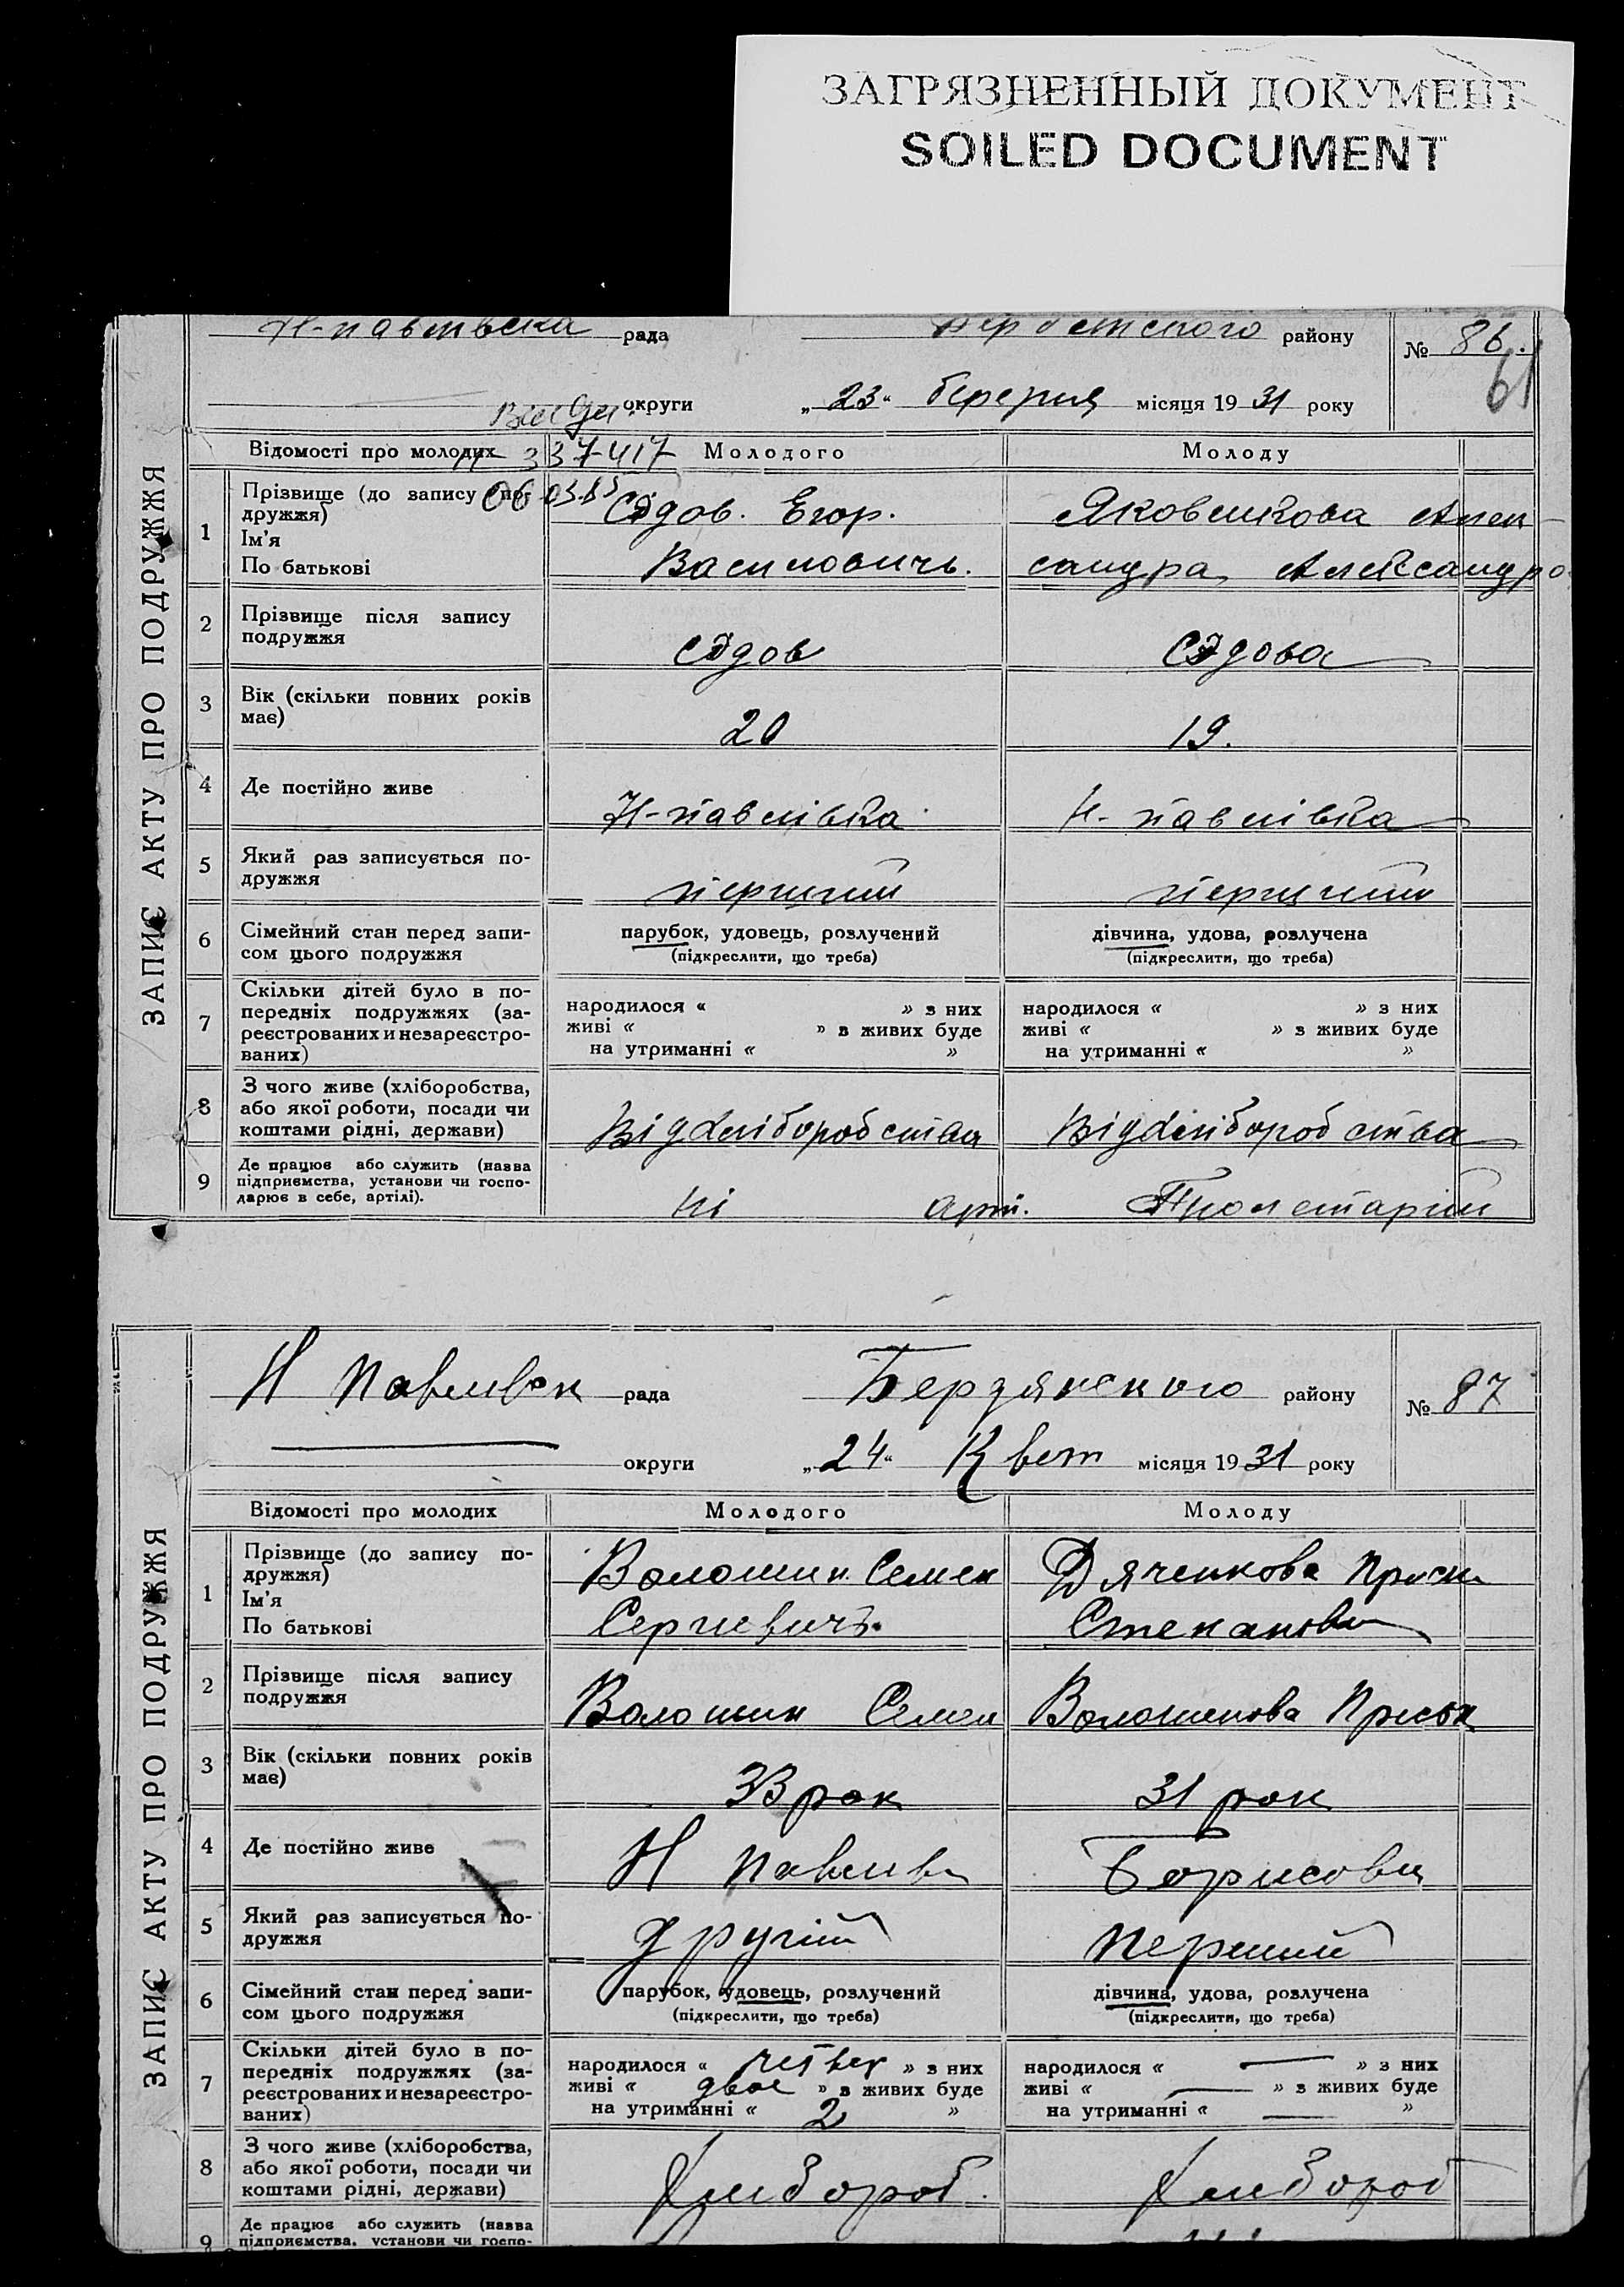 ЗАГРЯЗНЕННЫЙ ДОКУМЕНТ
SOILED DOCUMENT
рада району № 86.
61
округи „23“ березня місяця 1931 року
337417
Відомості про молодих Молодого Молоду
ЗАПИС АКТУ ПРО ПОДРУЖЖЯ
1 Прізвище (до запису по-
дружжя)
Ім'я
По батькові
Сєдов. Егор.
Василовичь.
Яковенкова Алек-
сандра Александро
2 Прізвище після запису
подружжя
Сєдов Сєдова
3 Вік (скільки повних років
має)
20 19.
4 Де постійно живе
Н-павлівка Н-павлівка
5 Який раз записується по-
дружжя
перший перший
6 Сімейний стан перед запи-
сом цього подружжя
парубок, удовець, розлучений дівчина, удова, розлучена
(підкреслити, що треба) (підкреслити, що треба)
7 Скільки дітей було в по-
передніх подружжях (за-
реєстрованих и незареєстро-
ваних)
народилося « » з них народилося « » з них
живі « » в живих буде живі « » з живих буде
на утриманні « » на утриманні « »
8 З чого живе (хліборобства,
або якої роботи, посади чи
коштами рідні, держави)
Відхліборобства Відхліборобства
9 Де працює або служить (назва
підприємства, установи чи госпо-
дарює в себе, артілі).
Ні арт. Пролетарій
Н Павливск рада Бердянского району № 87
округи „24“ Квет місяця 1931 року
Відомості про молодих Молодого Молоду
ЗАПИС АКТУ ПРО ПОДРУЖЖЯ
1 Прізвище (до запису по-
дружжя)
Ім'я
По батькові
Волошин Семен
Сергиевичъ
Дяченкова
Степановн
2 Прізвище після запису
подружжя
Волошин Семен Волошенова Приськ
3 Вік (скільки повних років
має)
33 рок 31 рок
4 Де постійно живе
Н Павлив Борисовц
5 Який раз записується по-
дружжя
другій перший
6 Сімейний стан перед запи-
сом цього подружжя
парубок, удовець, розлучений дівчина, удова, розлучена
(підкреслити, що треба) (підкреслити, що треба)
7 Скільки дітей було в по-
передніх подружжях (за-
реєстрованих и незареєстро-
ваних)
народилося « четвер » з них народилося « — » з них
живі « двое » в живих буде живі « — » з живих буде
на утриманні « 2 » на утриманні « — »
8 З чого живе (хліборобства,
або якої роботи, посади чи
коштами рідні, держави)
Хлибороб. Хлибороб
9 Де працює або служить (назва
підприємства, установи чи госпо-